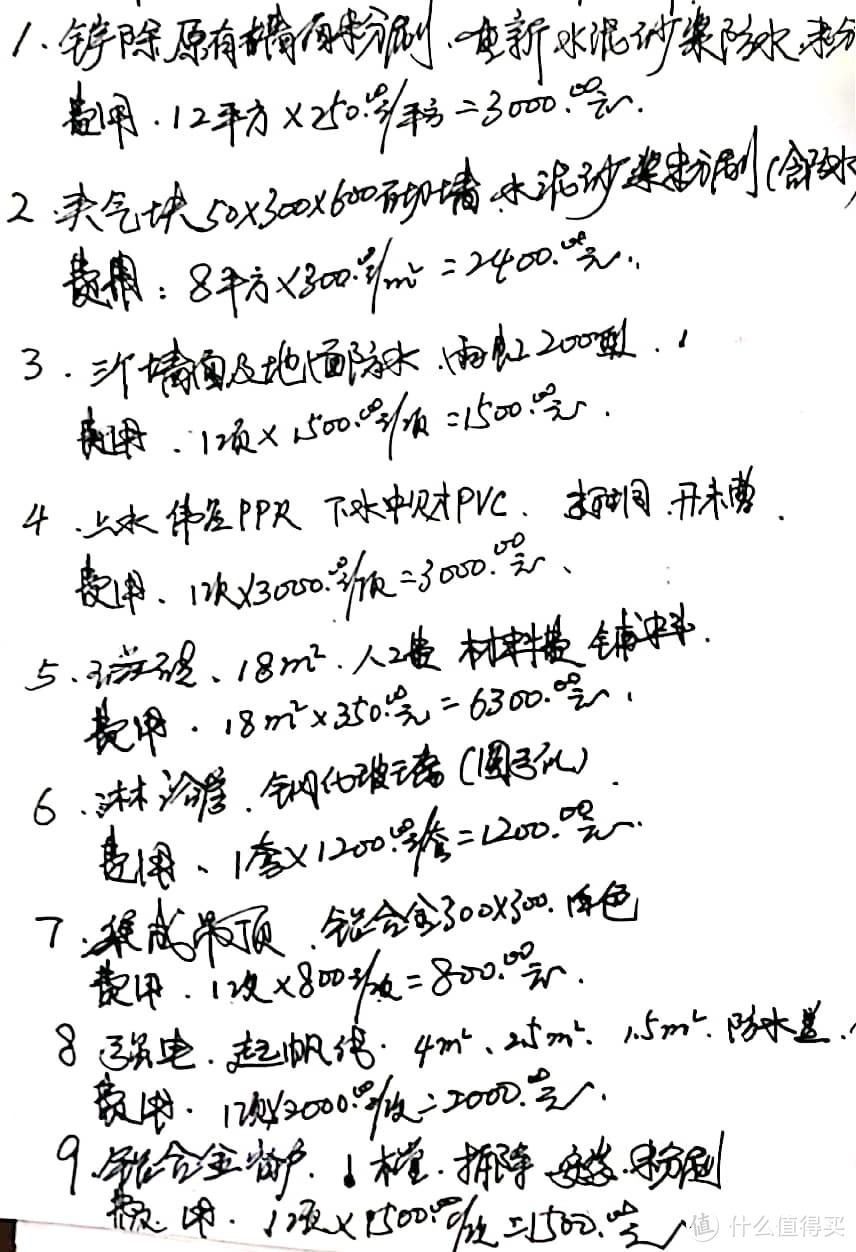 1. 铲除原有墙面粉刷. 重新水泥砂浆防水.粉
费用. 12平方×250.00元/平方=3000.00元.
2. 加气块50×300×600砌墙 水泥砂浆粉刷(含防水
费用: 8平方×300.00元/m²=2400.00元.
3. 三个墙面及地面防水.雨虹200型.
费用. 1项×1500.00元/项=1500.00元.
4. 上水伟星PPR 下水中财PVC. 打洞.开槽.
费用. 1项×3000.00元/项=3000.00元.
5. 瓷砖. 18m². 人工费 材料费 铺
费用. 18m²×350.00元=6300.00元.
6. 淋浴房. 钢化玻璃(圆弧)
费用. 1套×1200.00元/套=1200.00元.
7. 集成吊顶. 铝合金300×300. 白色
费用. 1项×800元/项=800.00元.
8 强电. 起帆线. 4m². 2.5m². 1.5m². 防水盖.
费用. 1项×2000.00元/项=2000.00元.
9. 铝合金窗户. 1樘. 拆除 安装.粉刷
费用. 1项×1500.00元/项=1500.00元
值 什么值得买